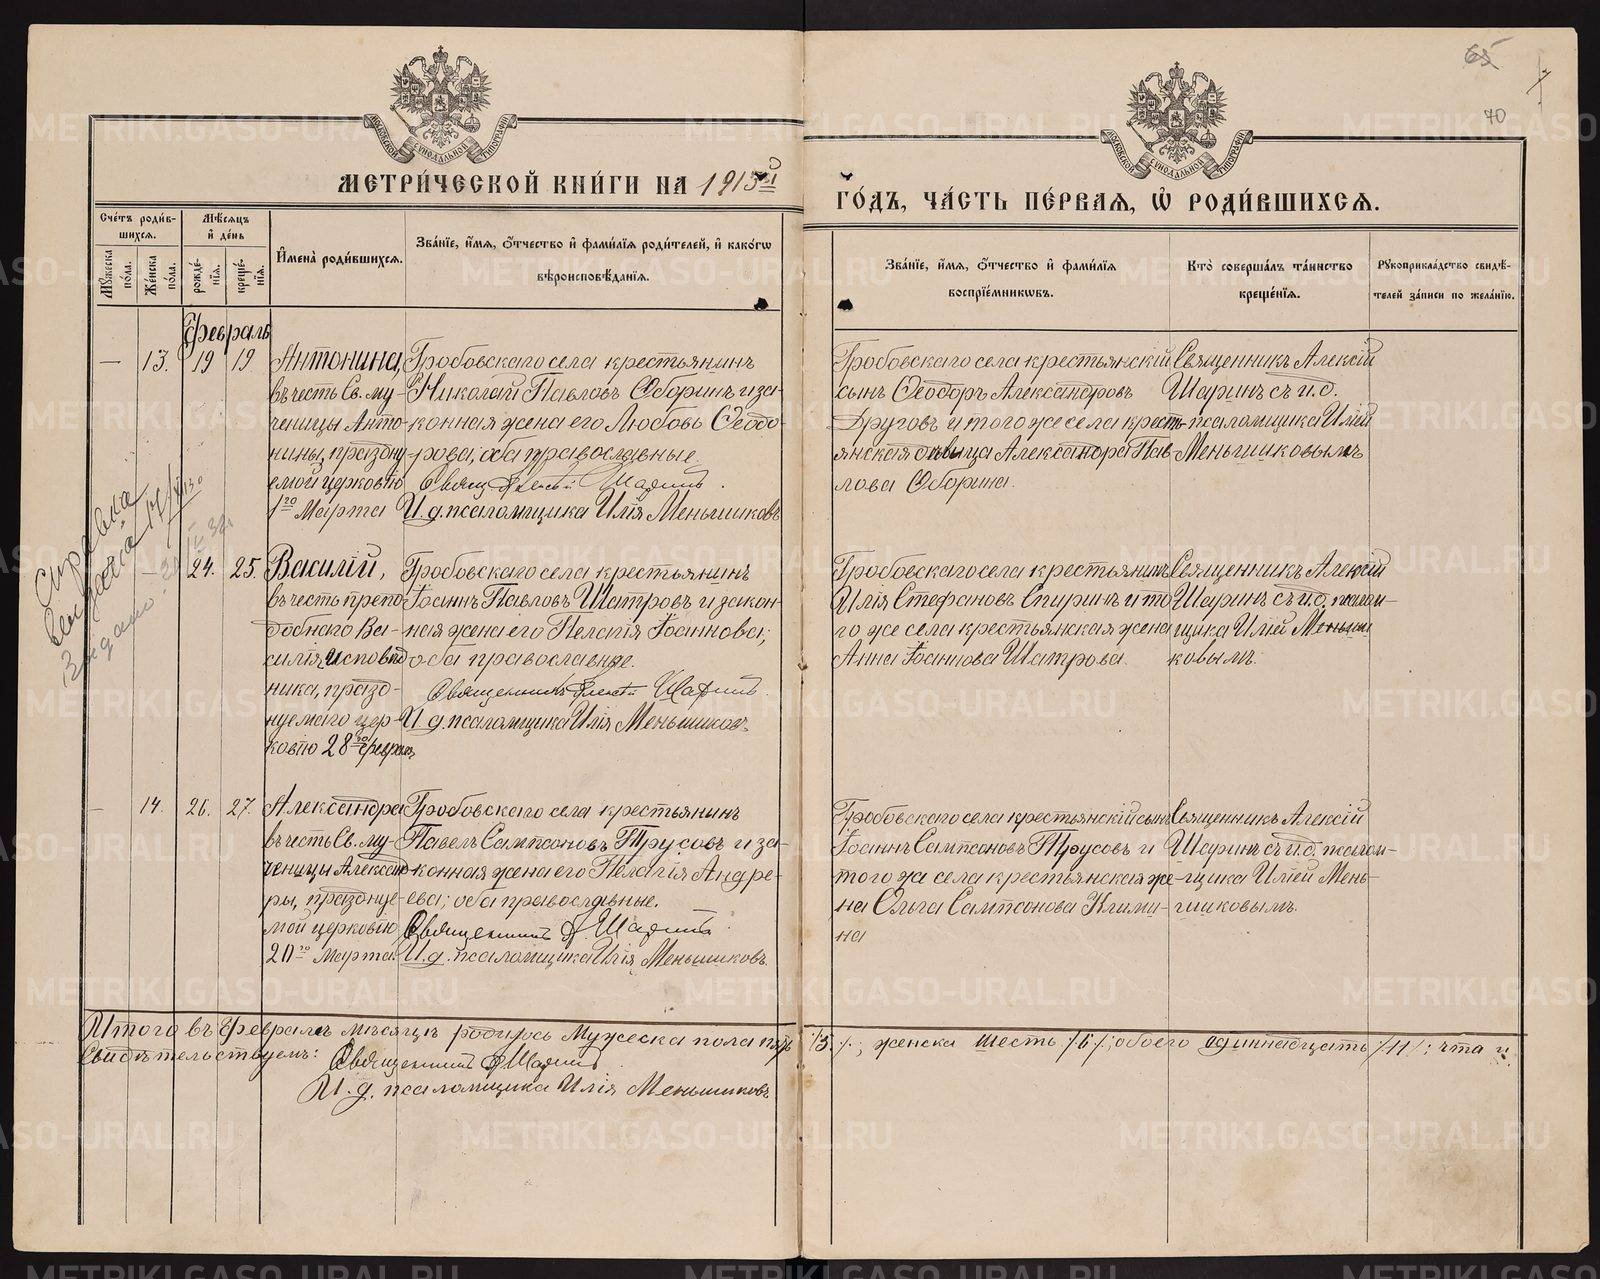 65
70
МОСКОВСКОЙ СУНОДАЛЬНОЙ ТИПОГРАФІИ
МОСКОВСКОЙ СУНОДАЛЬНОЙ ТИПОГРАФІИ
МЕТРИ́ЧЕСКОЙ КНИ́ГИ НА 1915й ГО́ДЪ, ЧА́СТЬ ПЕ́РВАЯ, Ѡ РОДИ́ВШИХСЯ.
Сче́тъ роди́вшихся.
Мужеска по́ла.
Же́нска по́ла.
Мѣ́сяцъ и́ де́нь
рожде́нїя.
креще́нїя.
И҆мена̀ роди́вшихся.
Зва́нїе, и҆́мя, ѻ҆́тчество и҆ фами́лїя роди́телей, и҆ како́гѡ вѣроисповѣ́данїя.
Зва́нїе, и҆́мя, ѻ҆́тчество и҆ фами́лїя воспрїе́мникѡвъ.
Кто̀ соверша́лъ та́инство креще́нїя.
Рꙋкоприкла́дство свидѣ́телей за́писи по жела́нїю.
Февраль
— 13. 19 19.
Антонина,
въ честь Св. му-
ченицы Анто-
нины, праздну-
емой церковію
1го Марта
Гробовскаго села крестьянинъ
Николай Павловъ Оборинъ и за-
конная жена его Любовь Ѳеодо-
рова, оба православные.
Свящ. Алексій Шаринъ.
И. д. псаломщика Илія Меньшиковъ
Гробовскаго села крестьянскій
сынъ Ѳеодоръ Александровъ
Друговъ и того же села кресть-
янская дѣвица Александра Пав-
лова Оборина.
Священникъ Алексій
Шаринъ съ и. д.
псаломщика Иліей
Меньшиковымъ
Справка
выдана
— 24. 25.
Василій,
въ честь препо-
добнаго Ва-
силія исповѣд-
ника, празд-
нуемаго цер-
ковію 28го февраля
Гробовскаго села крестьянинъ
Іоаннъ Павловъ Шатровъ и закон-
ная жена его Пелагія Іоаннова;
оба православные.
Священникъ Алексій Шаринъ.
И. д. псаломщика Илія Меньшиковъ.
Гробовскаго села крестьянинъ
Илія Стефановъ Спиринъ и то-
го же села крестьянская жена
Анна Іоаннова Шатрова.
Священникъ Алексій
Шаринъ съ и. д. псалом-
щика Иліей Меньши-
ковымъ.
— 14. 26. 27.
Александра
въ честь Св. му-
ченицы Александ-
ры, празднуе-
мой церковію
20го Марта
Гробовскаго села крестьянинъ
Павелъ Сампсоновъ Трусовъ и за-
конная жена его Пелагія Андре-
ева; оба православные.
Священникъ А. Шаринъ.
И. д. псаломщика Илія Меньшиковъ.
Гробовскаго села крестьянскій сынъ
Іоаннъ Сампсоновъ Трусовъ и
того же села крестьянская же-
на Ольга Сампсонова Клими-
на
Священникъ Алексій
Шаринъ съ и. д. псалом-
щика Иліей Мень-
шиковымъ.
Итого въ Февралѣ мѣсяцѣ родилось Мужеска пола пять /5/.; женска шесть /6/; обоего одиннадцать /11/; что и
Свидѣтельствуемъ: Священникъ А. Шаринъ
И. д. псаломщика Илія Меньшиковъ
METRIKI.GASO-URAL.RU